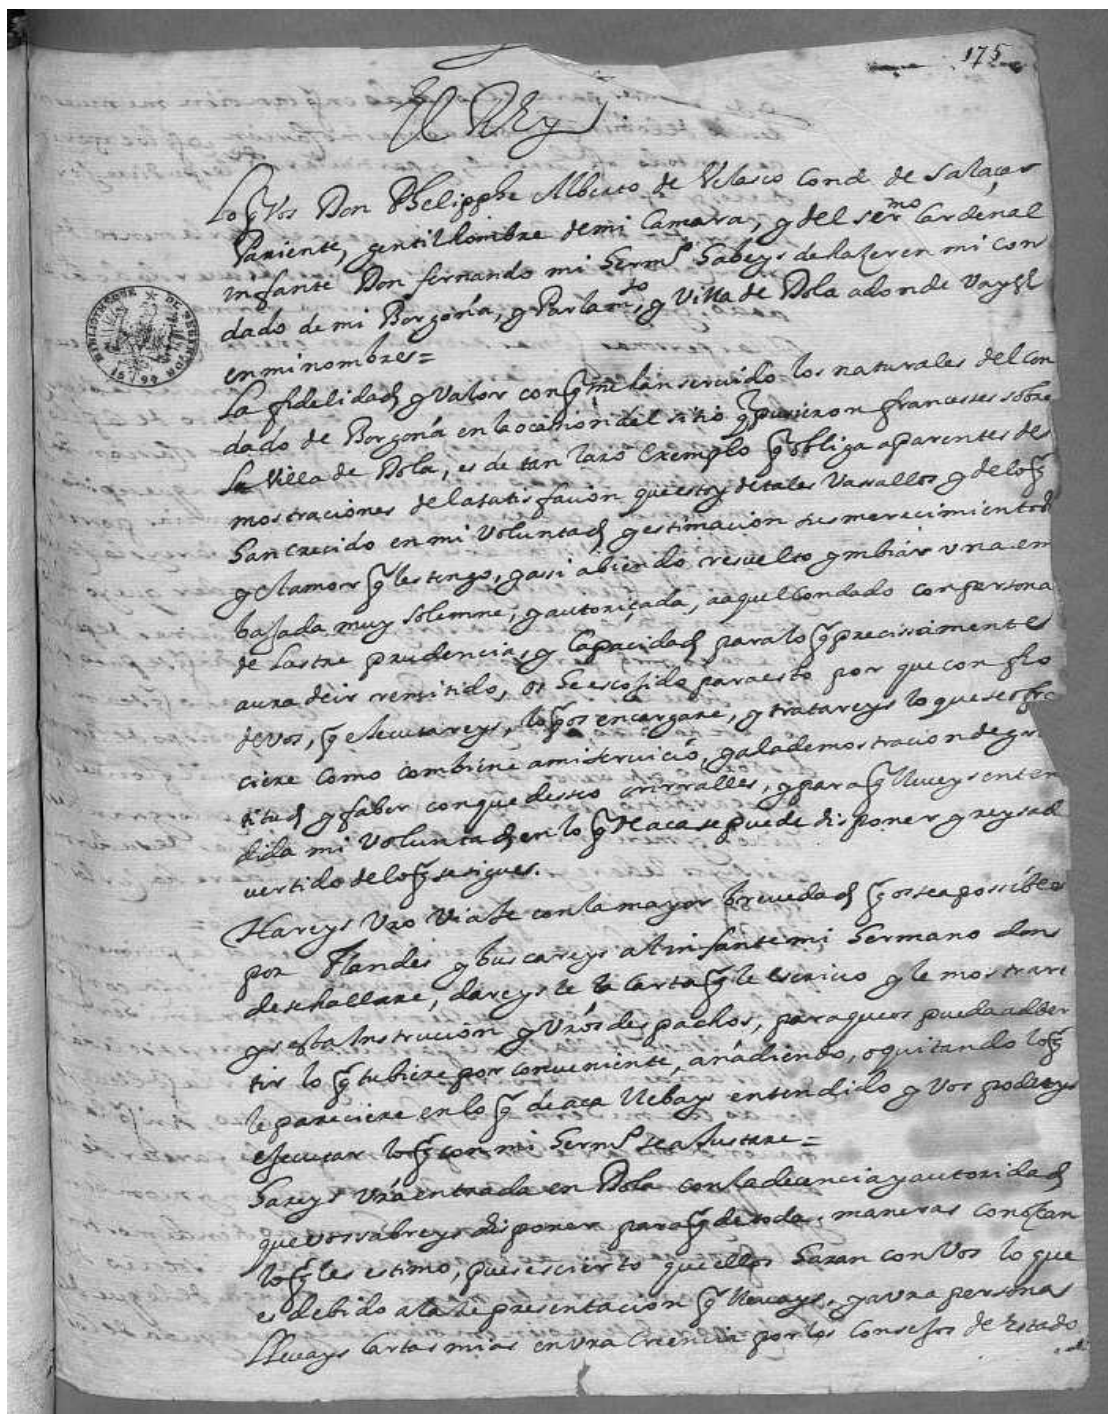 175
El Rey
Lo q̃ Vos Don Phelipphe Alberto de Velasco Conde de Salaçar
Pariente, gentilhombre de mi Camara, y del sermo Cardenal
infante Don fernando mi herm° habeys de hazer en mi con
dado de mi Borgoña, y Parlamto, y Villa de Dola adonde Vays
en mi nombre=
La fidelidad y Valor con q̃ me han seruido los naturales del Con
dado de Borgoña en la ocassion del sitio q̃ pusieron franceses sobre
La Villa de Dola, es de tan raro Exemplo q̃ obliga aparentes de
mostraciones de la satisfacion que estoy de tales Vassallos y de lo q̃
han crecido en mi Voluntad y estimacion sus merecimientos
y el amor q̃ les tengo, y assi abiendo resuelto ymbiar vna em
baxada muy solemne, y autoriçada, a aquel Condado con persona
de Lastre prudencia, y Capacidad para lo q̃ precissamente
aura de ir remitido, os he escojido para esto por que confio
de Vos, q̃ executareys, lo q̃ os encargare, y tratareys lo que se ofre
ciere como combiene a mi seruicio, y a la demostracion de gra
titud y fabor con que desseo onrralles, y para q̃ lleueys enten
dida mi Voluntad en lo q̃ de aca se puede disponer yreys ad
vertido de lo q̃ se sigue.
Hareys Vro Viaje con la mayor breuedad q̃ os sea possible
por Flandes y buscareys al infante mi hermano don
de se hallare, dareysle la Carta q̃ le escriuo y le mostrare
ys esta Instrucion y Vros despachos, para que os pueda adber
tir lo q̃ tubiere por conueniente, añadiendo, o quitando lo q̃
le pareciere en lo q̃ de aca llebays entendido y Vos podreys
executar lo q̃ con mi herm° se ajustare=
hareys Vra entrada en Dola con la decencia y autoridad
que vos sabreys disponer para q̃ de todas maneras conozcan
lo q̃ les estimo, pues es cierto que ellos haran con Vos lo que
es debido a la representacion q̃ lleuays, y a Vra persona
Lleuays Cartas mias en Vra Creencia por los Consejos de Estado